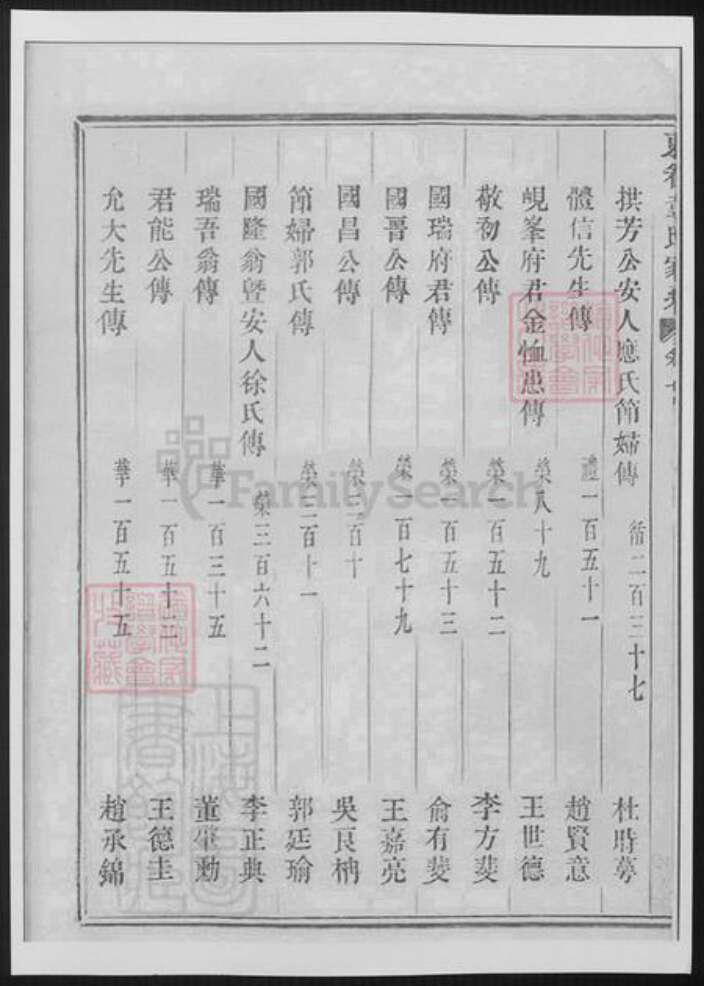 拱芳公安人應氏節婦傳 衛二百三十七 杜時芳
體信先生傳 禮一百五十一 趙賢意
峴峯府君金恤患傳 榮八十九 王世德
敬初公傳 榮一百五十二 李方蓁
國瑞府君傳 榮一百五十三 俞有斐
國晉公傳 榮一百七十九 王嘉亮
國昌公傳 榮二百十 吳良楠
節婦郭氏傳 榮二百十一 郭廷瑜
國隆翁暨安人徐氏傳 榮三百六十二 李正典
瑞吾翁傳 華一百三十五 董肇勳
君能公傳 華一百五十三 王德圭
允大先生傳 華一百五十五 趙承錦
FamilySearch